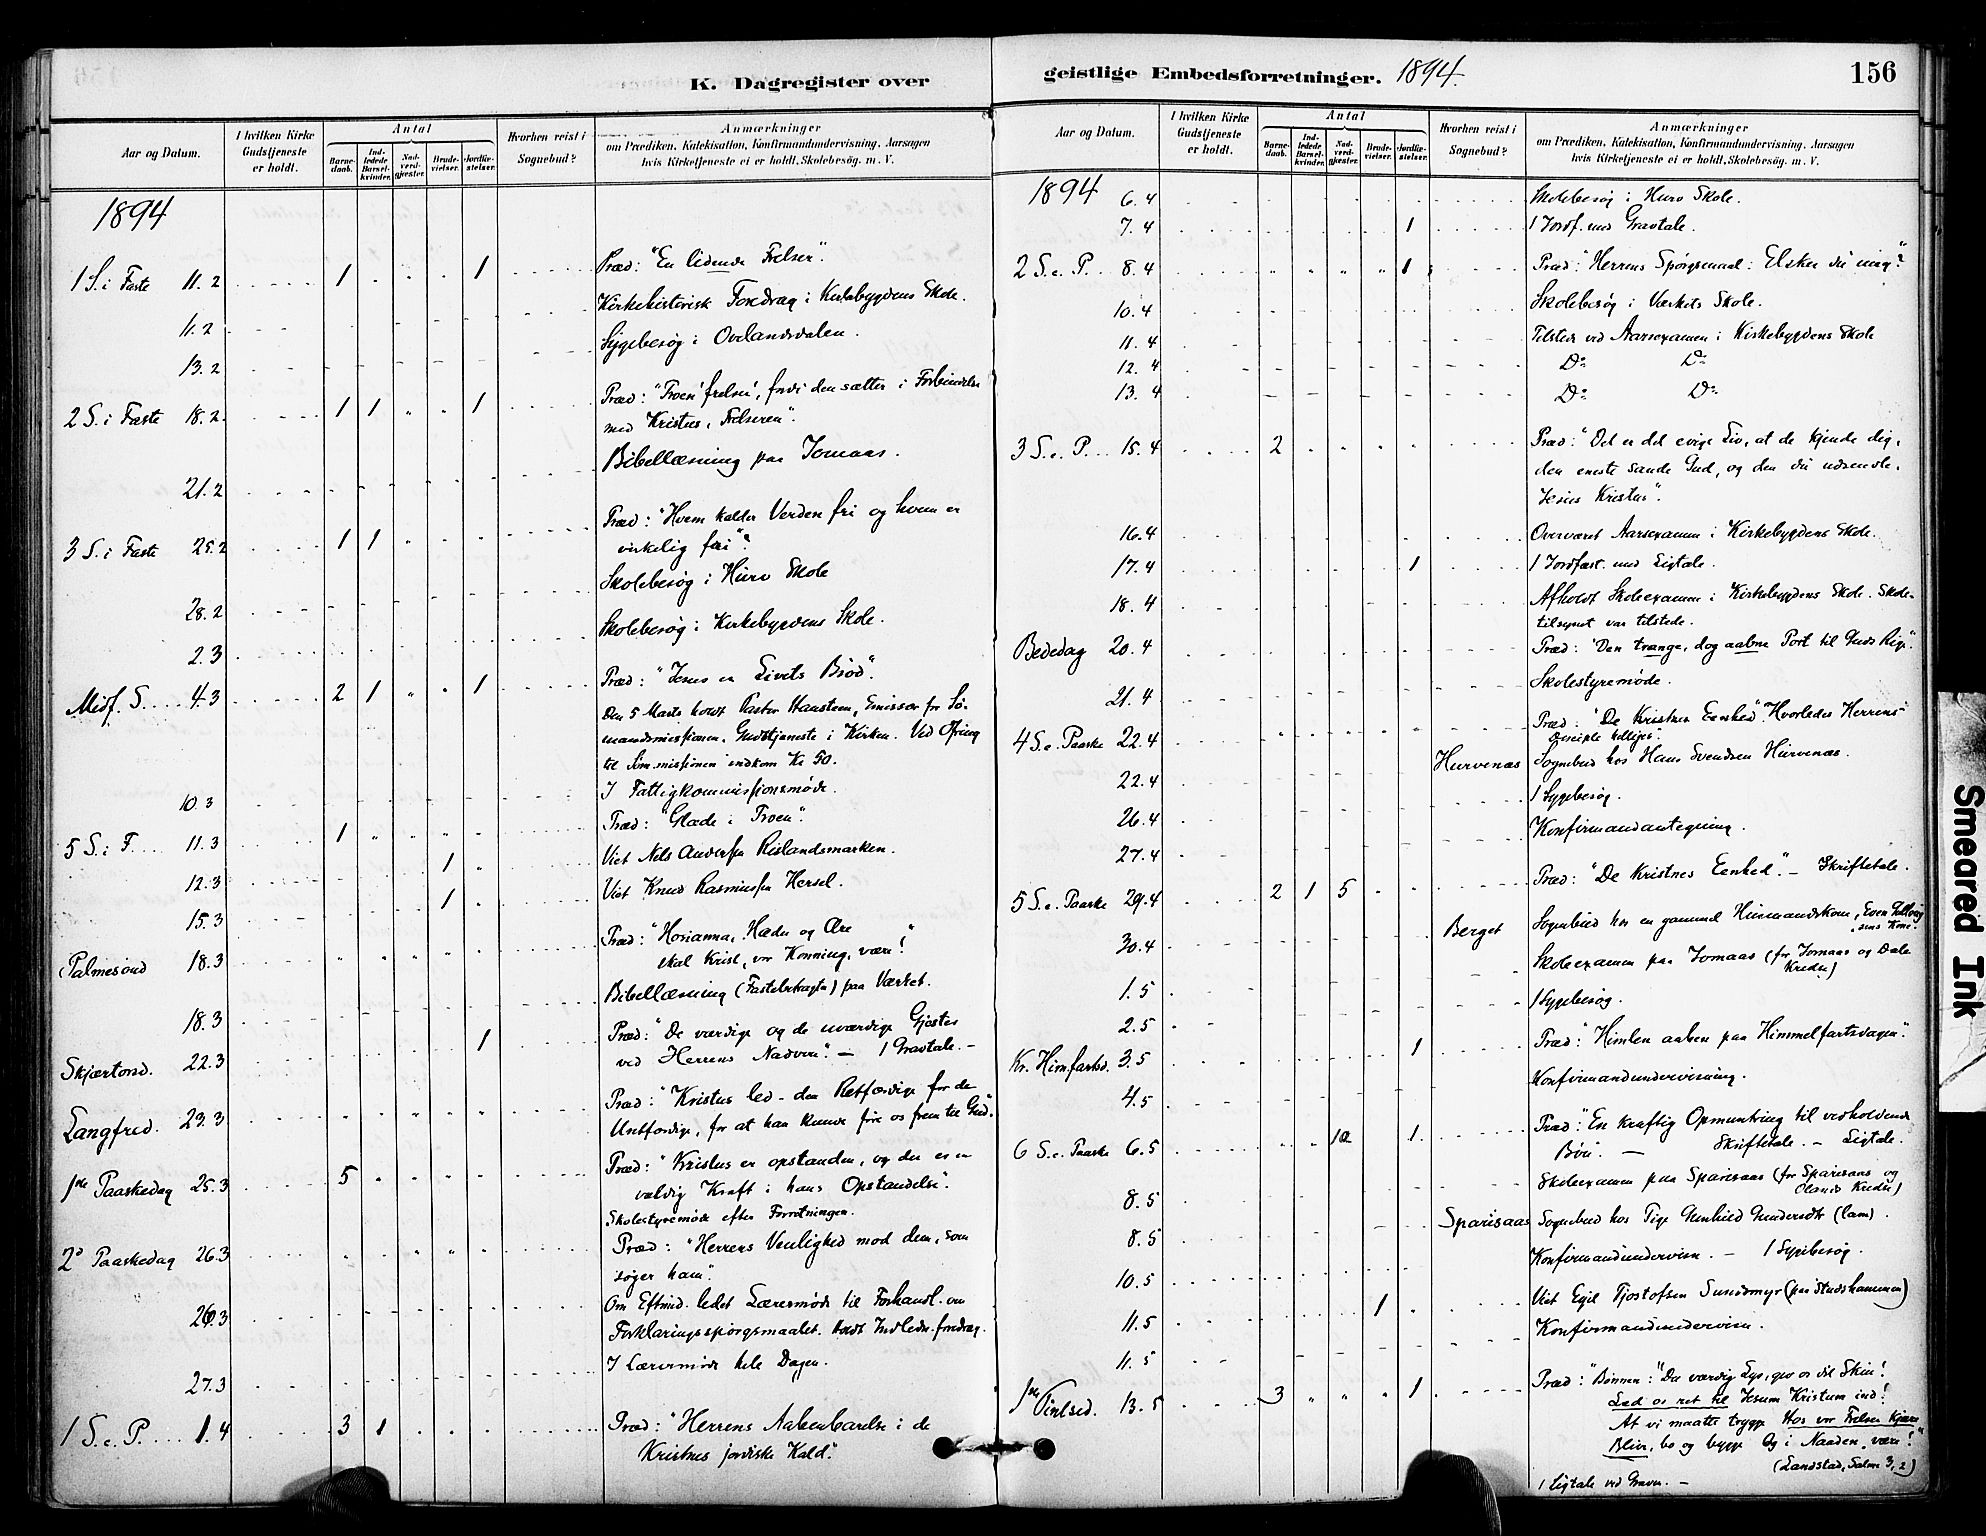 K. Dagregister over
Aar og Datum.
I hvilken Kirke Gudstjeneste er holdt.
Antal
Barne-daab.
Ind-ledede Barsel-kvinder.
Nad-verd-gjester.
Brude-vielser.
Jordfæ-stelser.
Hvorhen reist i Sognebud?
Anmærkninger
om Prædiken, Katekisation, Konfirmandundervisning, Aarsagen
hvis Kirketjeneste ei er holdt, Skolebesög, m. V.
1894
1 S. i Faste 11.2 1 1 Præd: "En lidende Frelser".
11.2 Kirkehistorisk Foredrag i Kirkebygdens Skole.
13.2 Sygebesøg i Ovelandsdalen.
2 S. i Faste 18.2 1 1 1 Præd: "Troen 'frelser', fordi den sætter i Forbindelse
med Kristus, Frelseren".
21.2 Bibellæsning paa Jomaas.
3 S. i Faste 25.2 1 1 Præd: "Hvem kalder Verden fri og hvem er
virkelig fri"?
28.2 Skolebesøg i Hurv Skole
2.3 Skolebesøg i Kirkebygdens Skole.
Midf. S. 4.3 2 1 1 Præd: "Jesus er Livets Brød".
Den 5 Marts holdt Pastor Haasteen, Emissær for Sø-
mandsmissionen, Gudstjeneste i Kirken. Ved Ofring
til Søm.missionen indkom Kr 50.
10.3 I Fattigkommissionsmøde.
5 S. i F. 11.3 1 Præd: "Glæde i Troen".
12.3 1 Viet Nels Anderssen Rislandsmarken.
15.3 1 Viet Knud Rasmussen Hersel.
Palmesønd 18.3 Præd: "Hosianna, Hæder og Ære
skal Krist, vor Konning, være!
18.3 Bibellæsning (Fastebetragtn) paa Værket.
Skjærtorsd. 22.3 1 Præd: "De værdige og de uværdige Gjester
ved Herrens Nadvere". — 1 Gravtale. —
Langfred. 23.3 Præd: "Kristus led - den Retfærdige for de
Uretfærdige, for at han kunde føre os frem til Gud".
1ste Paaskedag 25.3 5 Præd: "Kristus er opstanden, og der er en
vældig Kraft i hans Opstandelse".
Skolestyremøde efter Forretningen.
2den Paaskedag 26.3 Præd: "Herrens Venlighed mod dem, som
søger ham".
26.3 Om Eftmid. ledet Lærermøde til Forhandl. om
Forklaringsspørgsmaalet. Holdt Indledn.foredrag.
27.3 I Lærermøde hele Dagen.
1 S. e. P. 1.4 3 1 Præd: "Herrens Aabenbarelse i de
Kristnes jordiske Kald".
geistlige Embedsforretninger. 1894.
156
Aar og Datum.
I hvilken Kirke Gudstjeneste er holdt.
Antal
Barne-daab.
Ind-ledede Barsel-kvinder.
Nad-verd-gjester.
Brude-vielser.
Jordfæ-stelser.
Hvorhen reist i Sognebud?
Anmærkninger
om Prædiken, Katekisation, Konfirmandundervisning, Aarsagen
hvis Kirketjeneste ei er holdt, Skolebesög, m. V.
1894 6.4 Skolebesøg i Hurv Skole.
7.4 1 1 Jordf. med Gravtale.
2 S. e. P. 8.4 1 Præd: "Herrens Spørgsmaal: Elsker du mig?"
10.4 Skolebesøg i Værkets Skole.
11.4 Tilstede ved Aarsexamen i Kirkebygdens Skole
12.4 Do Do
13.4 Do Do
3 S. e. P. 15.4 2 Præd: "Det er det evige Liv, at de kjende dig,
den eneste sande Gud, og den du udsendte,
Jesus Kristus".
16.4 Overværet Aarsexamen i Kirkebygdens Skole.
17.4 1 1 Jordfæst. med Ligtale.
18.4 Afholdt Skoleexamen i Kirkebygdens Skole. Skole-
tilsynet var tilstede.
Bededag 20.4 Præd: "Den trange, dog aabne Port til Guds Rige".
21.4 Skolestyremøde.
4 S. e. Paaske 22.4 Præd: "De Kristnes Eenhed". Hvorledes Herrens
Disciple helliges.
22.4 Hurvenæs Sognebud hos Hans Svendsen Hurvenæs.
26.4 1 Sygebesøg.
27.4 Konfirmandantegning.
5 S. e. Paaske 29.4 2 1 5 Præd: "De Kristnes Eenhed". — Skriftetale.
30.4 Berget Sognebud hos en gammel Husmandskone, Even
sens Kone.
1.5 Skoleexamen paa Jomaas (for Jomaas og Dale
Kredse)
2.5 1 Sygebesøg.
Kr. Himfartsd. 3.5 1 Præd: "Himlen aaben paa Himmelfartsdagen".
4.5 Konfirmandundervisning.
6 S. e. Paaske 6.5 10 1 Præd: "En kraftig Opmuntring til vedholdende
Bøn. — Skriftetale. — Ligtale.
8.5 Skoleexamen paa Sparisaas (for Sparisaas og
Olands Kredse)
8.5 Sparisaas Sognebud hos Pige Gunhild Gundersdt (lam).
10.5 Konfirmandundervisn. — 1 Sygebesøg.
11.5 1 Viet Egil Tjostofsen Sundsmyr (paa Studshammeren)
11.5 Konfirmandundervisn.
1ste Pintsed. 13.5 3 1 Præd: Bønnen: "Du værdig Lys, giv os dit Skin!
Led os ret til Jesum Kristum ind!
At vi maatte trygge Hos vor Frelser kjære
Blive, bo og bygge Og i Naaden være!"
(Landstad, Salme 3, 2)
1 Ligtale ved Graven. —
Smeared Ink